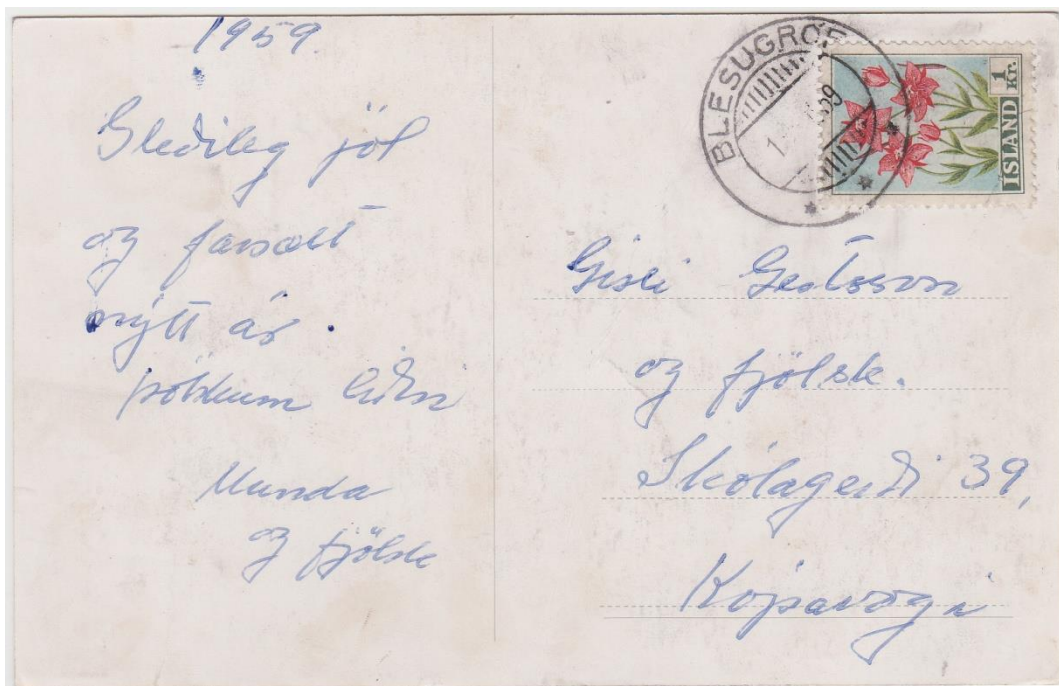 1959.
Gleðileg jól
og farsælt
nýtt ár.
þökkum liðin
Munda
og fjölsk
BLESUGRÓF
59
1 Kr.
ÍSLAND
Gísli Gestsson
og fjölsk.
Skólagerði 39,
Kópavogi